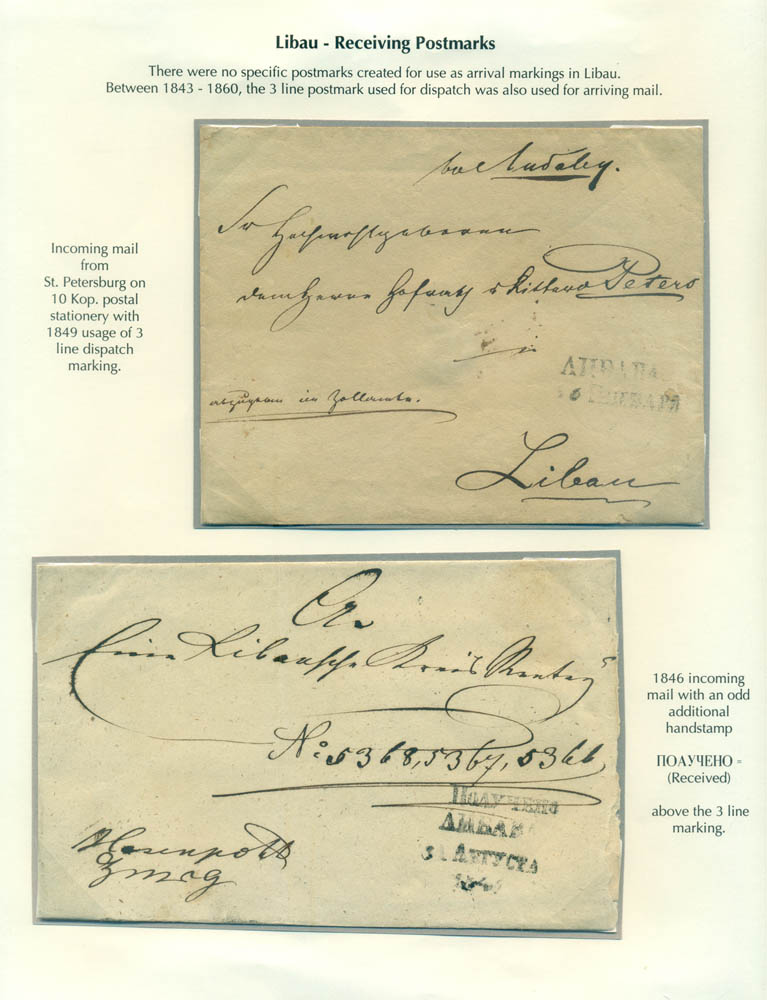 Libau - Receiving Postmarks
There were no specific postmarks created for use as arrival markings in Libau.
Between 1843 - 1860, the 3 line postmark used for dispatch was also used for arriving mail.
Incoming mail
from
St. Petersburg on
10 Kop. postal
stationery with
1849 usage of 3
line dispatch
marking.
Sr Hochwohlgeboren
dem Herrn Hofrath & Ritter Peters
in
ЛИБАВА
ЯНВАРЯ
Libau
1846 incoming
mail with an odd
additional
handstamp
ПОЛУЧЕНО =
(Received)
above the 3 line
marking.
An
Eine Libausche Kreis Rentey
No: 5368, 5367, 5366
ПОЛУЧЕНО
ЛИБАВА
31 АВГУСТА
1846
Hasenpoth